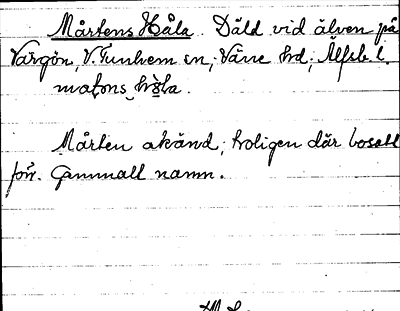 Mårtens Håla. Däld vid älven på
Vargön, V. Tunhem sn; Väne hd; Älfsb. l.
matons hòla.
Mårten okänd; troligen där bosatt
förr. Gammalt namn.